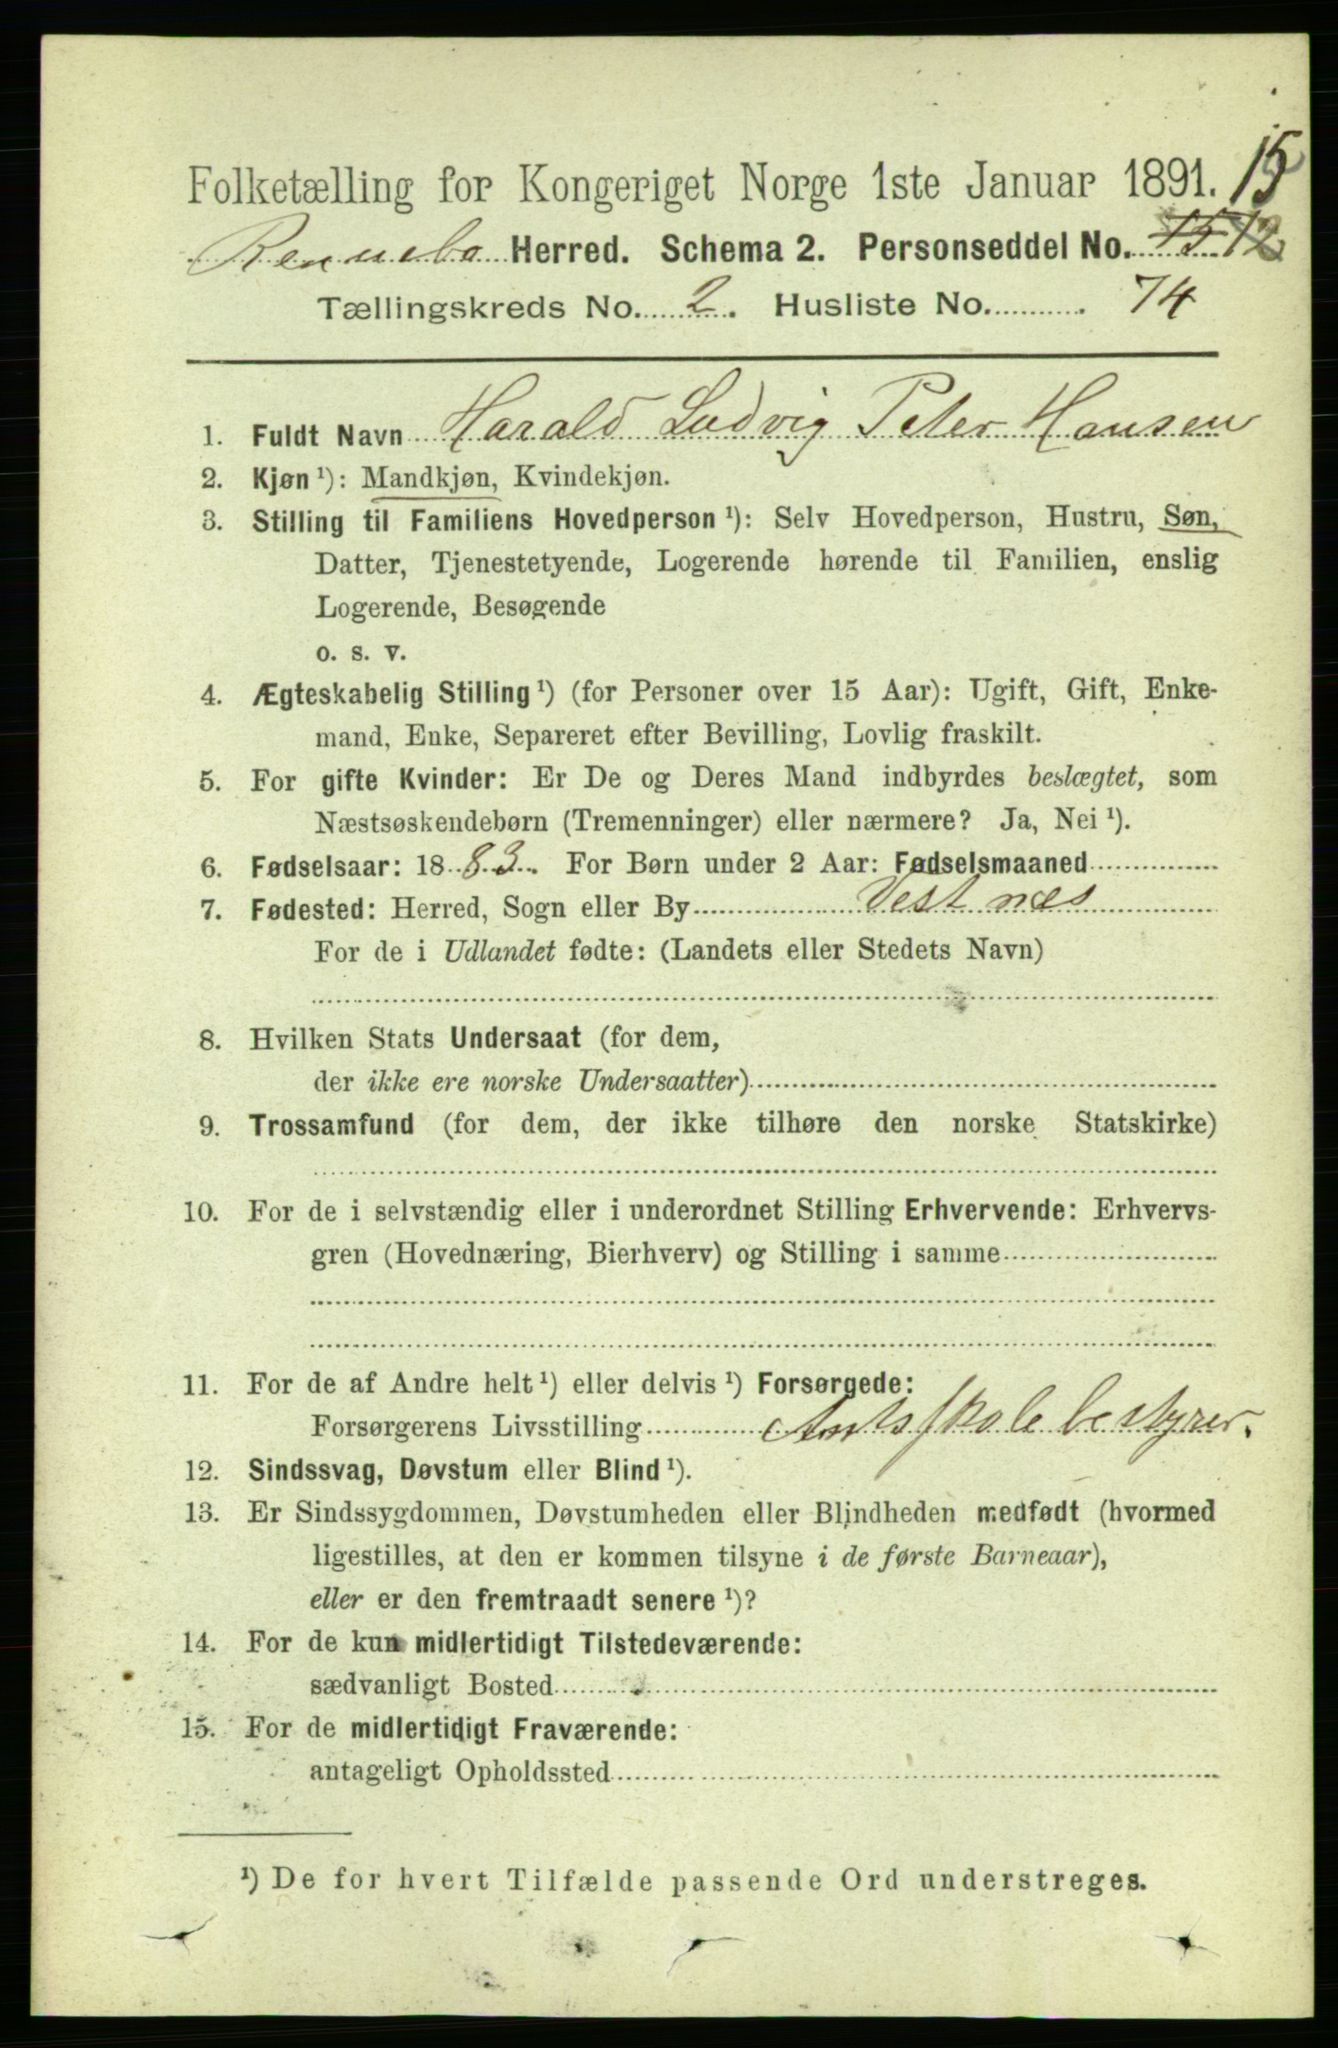 Folketælling for Kongeriget Norge 1ste Januar 1891. 15
Rennebo Herred. Schema 2. Personseddel No. 15 12
Tællingskreds No. 2. Husliste No. 74
1. Fuldt Navn Harald Ludvig Peter Hansen
2. Kjøn ¹): Mandkjøn, Kvindekjøn.
3. Stilling til Familiens Hovedperson ¹): Selv Hovedperson, Hustru, Søn,
Datter, Tjenestetyende, Logerende hørende til Familien, enslig
Logerende, Besøgende
o. s. v.
4. Ægteskabelig Stilling ¹) (for Personer over 15 Aar): Ugift, Gift, Enke-
mand, Enke, Separeret efter Bevilling, Lovlig fraskilt.
5. For gifte Kvinder: Er De og Deres Mand indbyrdes beslægtet, som
Næstsøskendebørn (Tremenninger) eller nærmere? Ja, Nei ¹).
6. Fødselsaar: 1883. For Børn under 2 Aar: Fødselsmaaned
7. Fødested: Herred, Sogn eller By Vestnæs
For de i Udlandet fødte: (Landets eller Stedets Navn)
8. Hvilken Stats Undersaat (for dem,
der ikke ere norske Undersaatter)
9. Trossamfund (for dem, der ikke tilhøre den norske Statskirke)
10. For de i selvstændig eller i underordnet Stilling Erhvervende: Erhvervs-
gren (Hovednæring, Bierhverv) og Stilling i samme
11. For de af Andre helt ¹) eller delvis ¹) Forsørgede:
Forsørgerens Livsstilling Amtsskolebestyrer.
12. Sindssvag, Døvstum eller Blind ¹).
13. Er Sindssygdommen, Døvstumheden eller Blindheden medfødt (hvormed
ligestilles, at den er kommen tilsyne i de første Barneaar),
eller er den fremtraadt senere ¹)?
14. For de kun midlertidigt Tilstedeværende:
sædvanligt Bosted
15. For de midlertidigt Fraværende:
antageligt Opholdssted
¹) De for hvert Tilfælde passende Ord understreges.